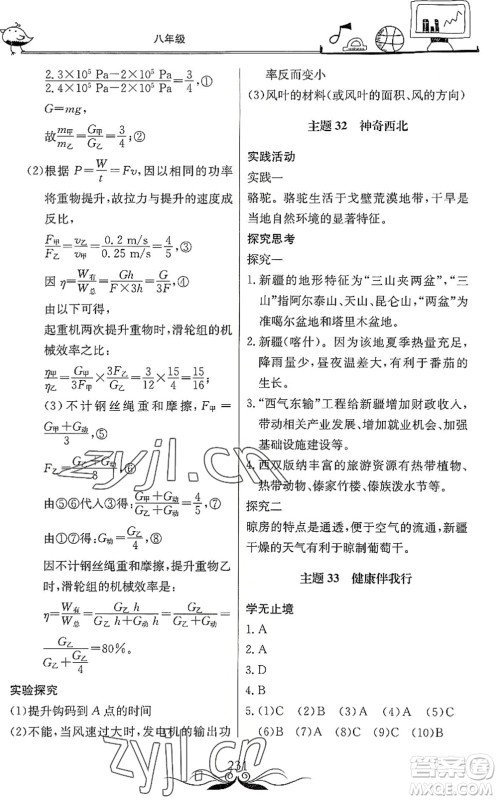 八年级
2.3×10⁵ Pa-2×10⁵ Pa / 2.4×10⁵ Pa-2×10⁵ Pa = 3/4,①
G=mg,
故 m甲/m乙 = G甲/G乙 = 3/4;②
(2)根据 P=W/t=Fv,因以相同的功率
将重物提升,故拉力与提升的速度成
反比,
F甲/F乙=v乙/v甲=0.2 m/s / 0.25 m/s=4/5,③
因 η=W有/W总=Gh/F×3h=G/3F,④
由以上可得,
起重机两次提升重物时,滑轮组的机
械效率之比:
η甲/η乙=G甲/3F甲×3F乙/G乙=3/12×15/4=15/16;
(3)不计钢丝绳重和摩擦,F甲=
G甲+G动/3,⑤
F乙=G乙+G动/3,⑥
由⑤⑥代入③得:G甲+G动/G乙+G动=4/5,⑦
由②⑦得:G动=G乙/4,⑧
因不计钢丝绳重和摩擦,提升重物乙
时,滑轮组的机械效率是:
η=W有/W总=G乙 h/G乙 h+G动 h=G乙/G乙+G动=
G乙/G乙+G乙/4=80%。
实验探究
(1)提升钩码到 A 点的时间
(2)不能,当风速过大时,发电机的输出功
率反而变小
(3)风叶的材料(或风叶的面积、风的方向)
主题 32 神奇西北
实践活动
实践一
骆驼。骆驼生活于戈壁荒漠地带,干旱是
当地自然环境的显著特征。
探究思考
探究一
1.新疆的地形特征为“三山夹两盆”,“三
山”指阿尔泰山、天山、昆仑山,“两盆”为
准噶尔盆地和塔里木盆地。
2.新疆(喀什)。因为该地夏季热量充足,
降雨量少,昼夜温差大,有利于番茄的
生长。
3.“西气东输”工程给新疆增加财政收入,
带动相关产业发展、增加就业机会、加强
基础设施建设等。
4.西双版纳丰富的旅游资源有热带植物、
热带动物、傣家竹楼、傣族泼水节等。
探究二
晾房的特点是通透,便于空气的流通,新疆
干燥的天气有利于晾制葡萄干。
主题 33 健康伴我行
学无止境
1. A
2. A
3. D
4. B
5.(1)C (2)C (3)A (4)C (5)A
(6)B (7)A (8)C (9)A (10)B
231
zyjl.cn
zyjl.cn
答案圈
MXQE.COM